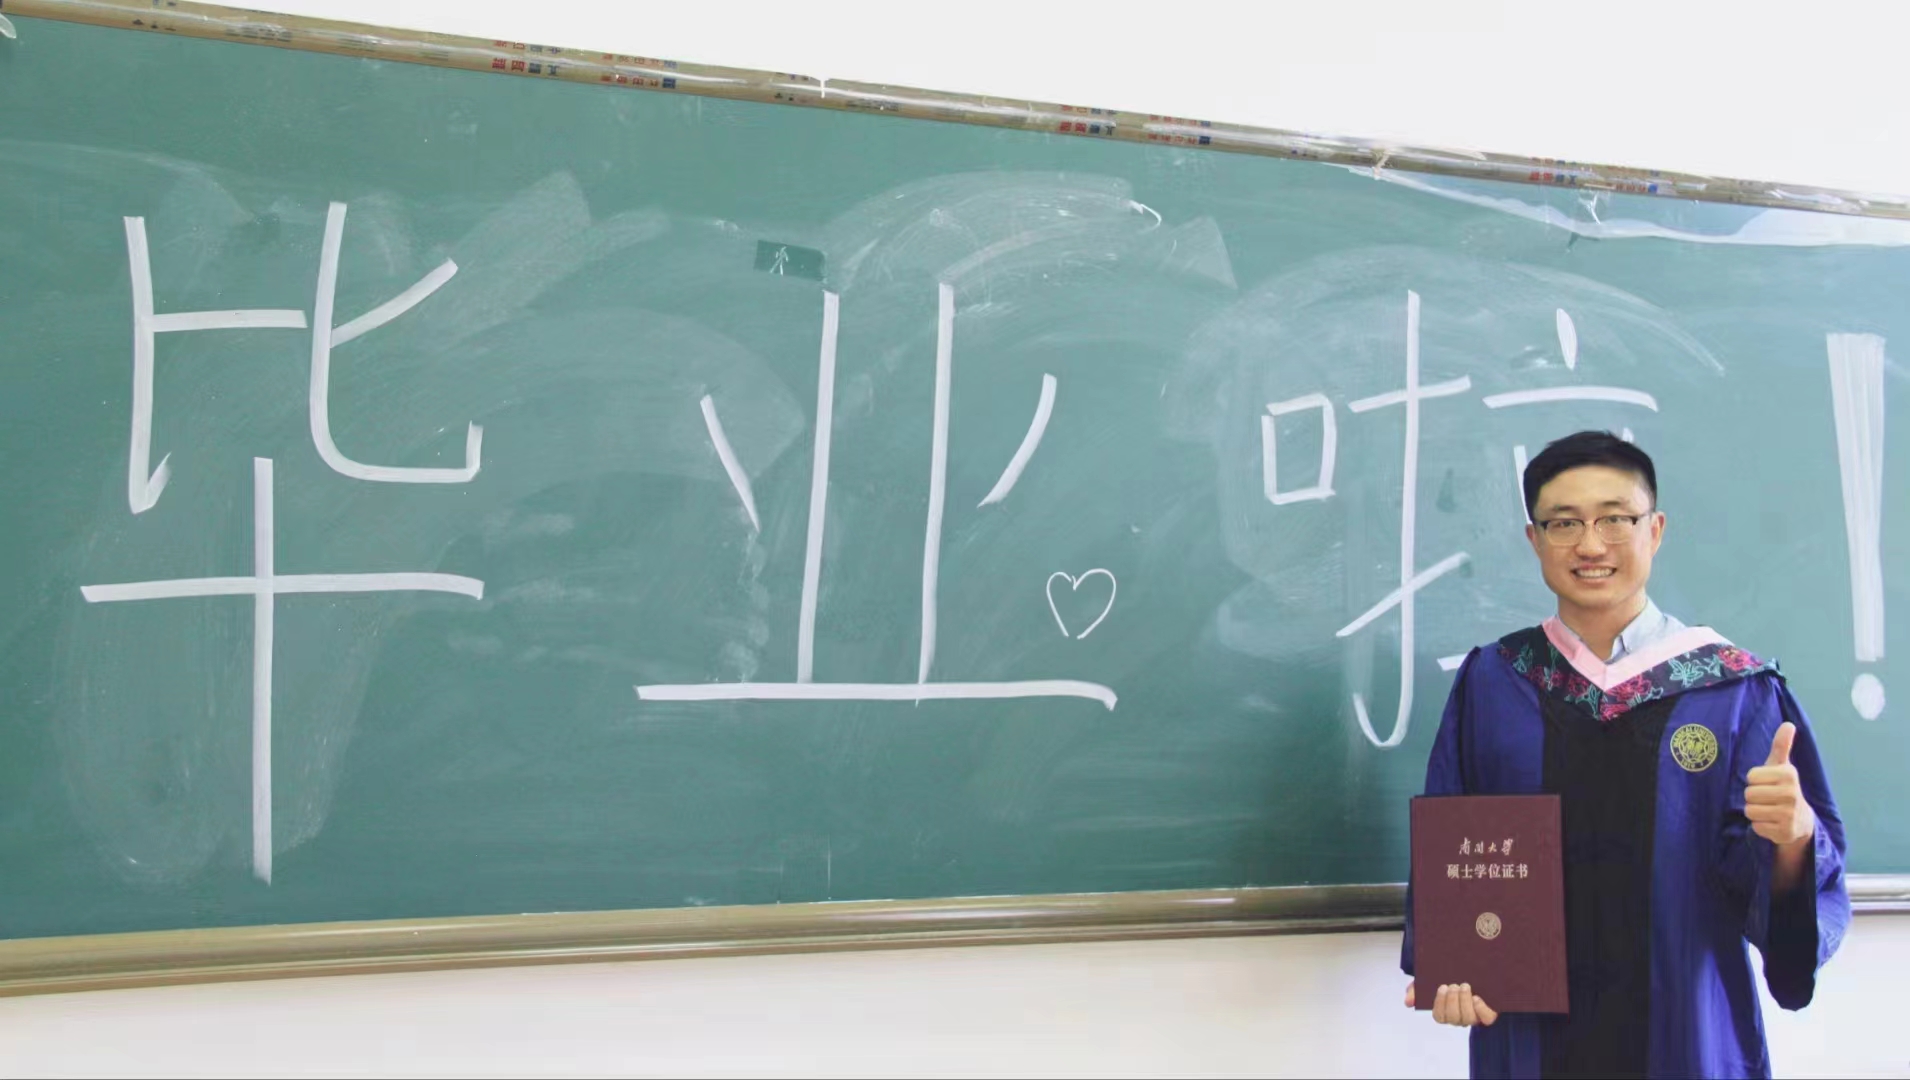 毕业啦！
南开大学
硕士学位证书